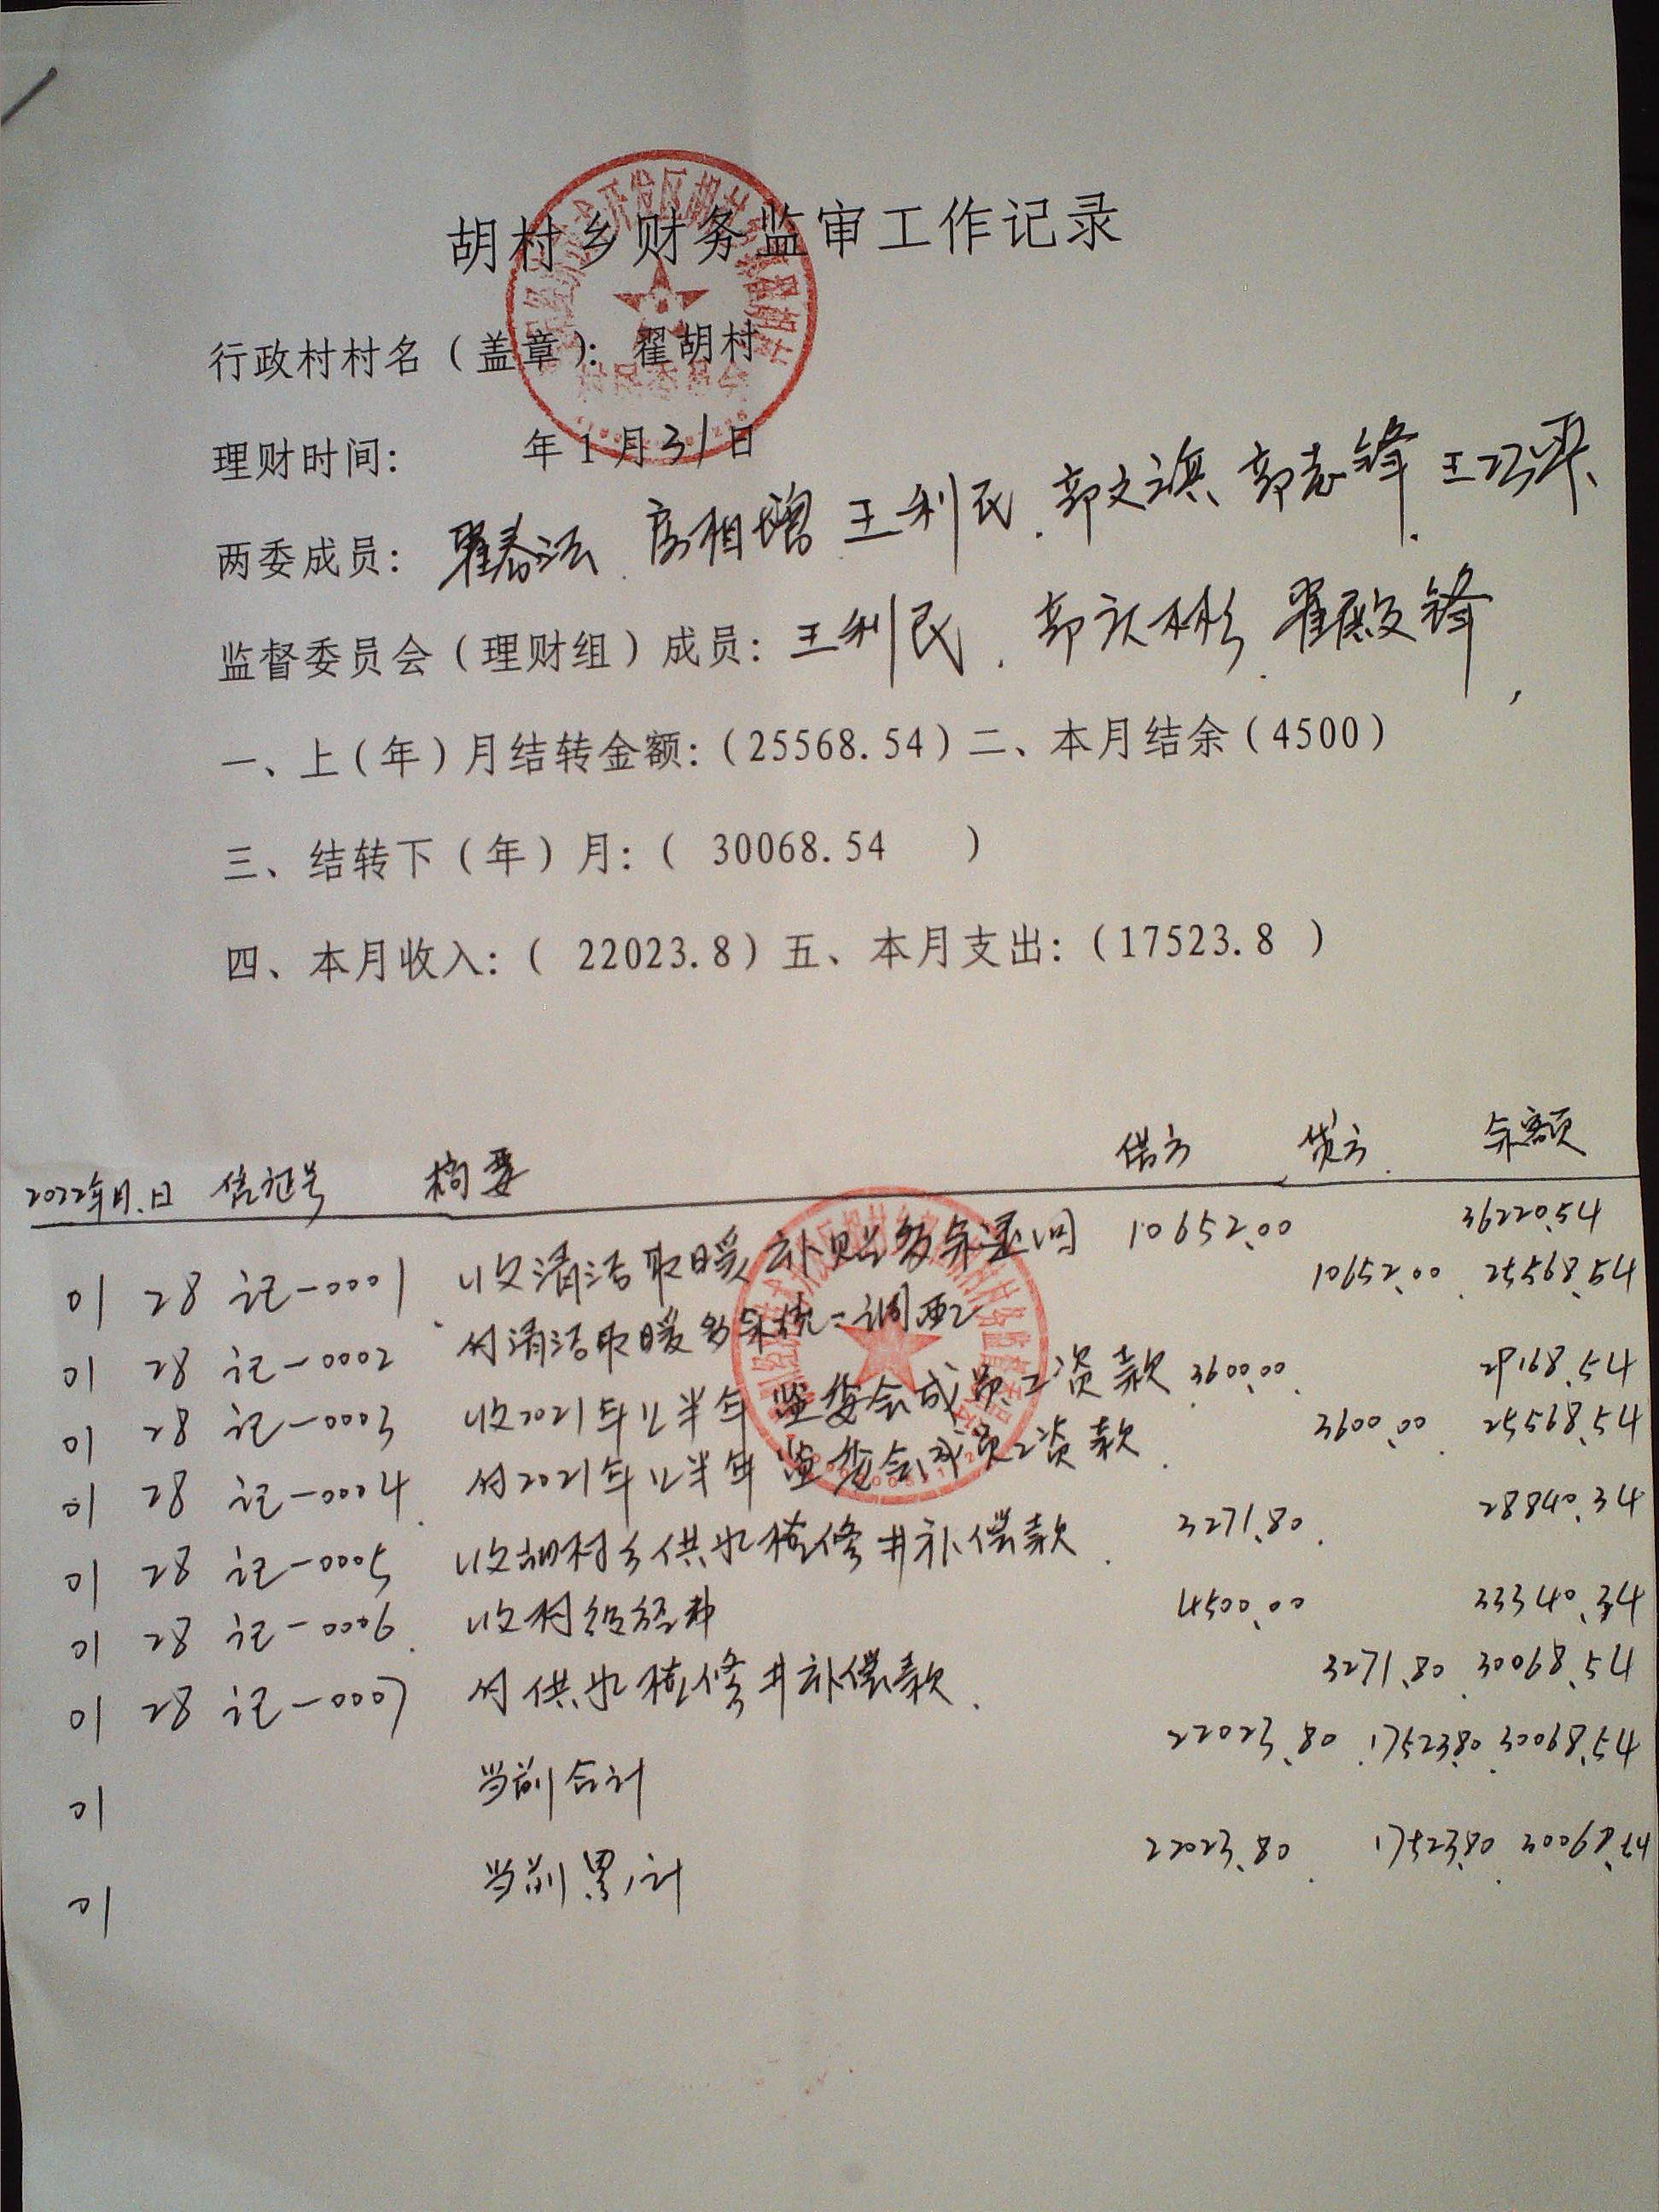 胡村乡财务监审工作记录
行政村村名（盖章）：翟胡村
村民委员会
理财时间： 年1月31日
两委成员：翟春法、房相增、王利民、郭文旗、郭志锋、王巧平、
监督委员会（理财组）成员：王利民、郭庆彬、翟殿锋
一、上（年）月结转金额：（25568.54）二、本月结余（4500）
三、结转下（年）月：（ 30068.54 ）
四、本月收入：（ 22023.8）五、本月支出：（17523.8 ）
2022年月.日 凭证号 摘要 借方 贷方 余额
01 28 记-0001 收清洁取暖补贴多余退回 10652.00 36220.54
01 28 记-0002 付清洁取暖多余统一调配 10652.00 25568.54
01 28 记-0003 收2021年上半年监委会成员工资款 3600.00 29168.54
01 28 记-0004 付2021年上半年监委会成员工资款 3600.00 25568.54
01 28 记-0005 收胡村乡供水站修井补偿款 3271.80 28840.34
01 28 记-0006 收村级经费 4500.00 33340.34
01 28 记-0007 付供水站修井补偿款 3271.80 30068.54
01 当前合计 22023.80 17523.80 30068.54
01 当前累计 22023.80 17523.80 30068.54